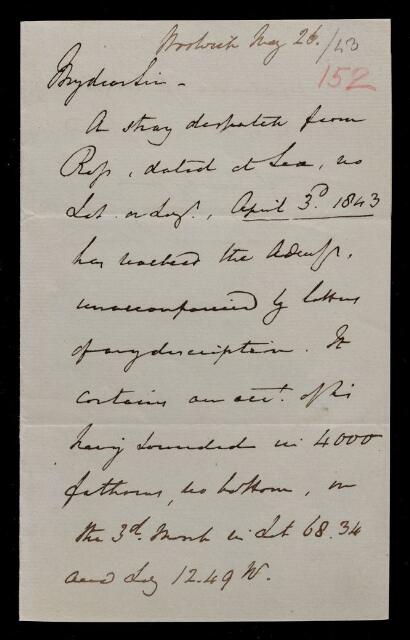 Woolwich May 26./43
152
My dear Sir –
A stray despatch from
Ross, dated at Sea, no
Lat. or Long., April 3d. 1843
has reached the Admty.,
unaccompanied by letters
of any description. It
contains an acct. of his
having sounded in 4000
fathoms, no bottom, on
the 3d. March in Lat 68.34
and Long 12.49 W.